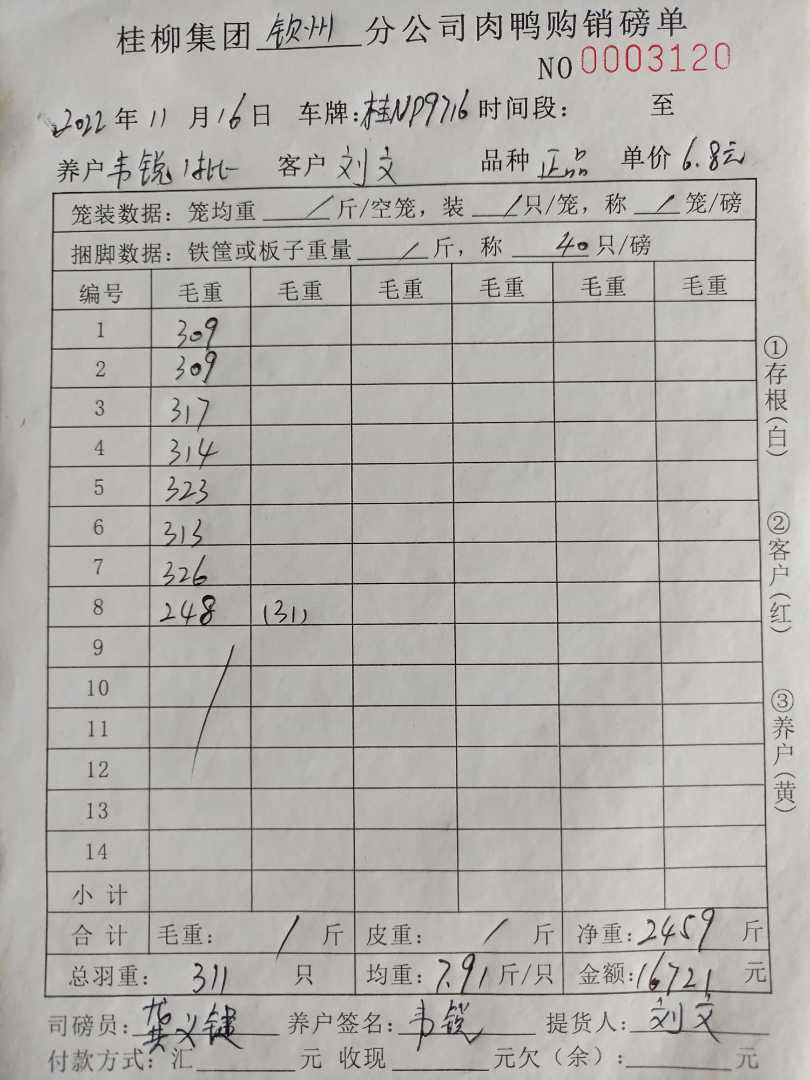 桂柳集团 钦州 分公司肉鸭购销磅单
NO 0003120
2022年11月16日 车牌:桂NP9716 时间段: 至
养户 韦锐1批 客户 刘文 品种 正品 单价 6.8元
笼装数据: 笼均重 / 斤/空笼, 装 / 只/笼, 称 / 笼/磅
捆脚数据: 铁筐或板子重量 / 斤, 称 40 只/磅
编号 毛重 毛重 毛重 毛重 毛重 毛重
1 309
2 309
3 317
4 314
5 323
6 313
7 326
8 248 (31)
9
10
11
12
13
14
小计
合计 毛重: / 斤 皮重: / 斤 净重:2459 斤
总羽重: 311 只 均重:7.91斤/只 金额:16721 元
司磅员:龚义键 养户签名:韦锐 提货人:刘文
付款方式:汇 元 收现 元欠(余): 元
①存根(白)
②客户(红)
③养户(黄)